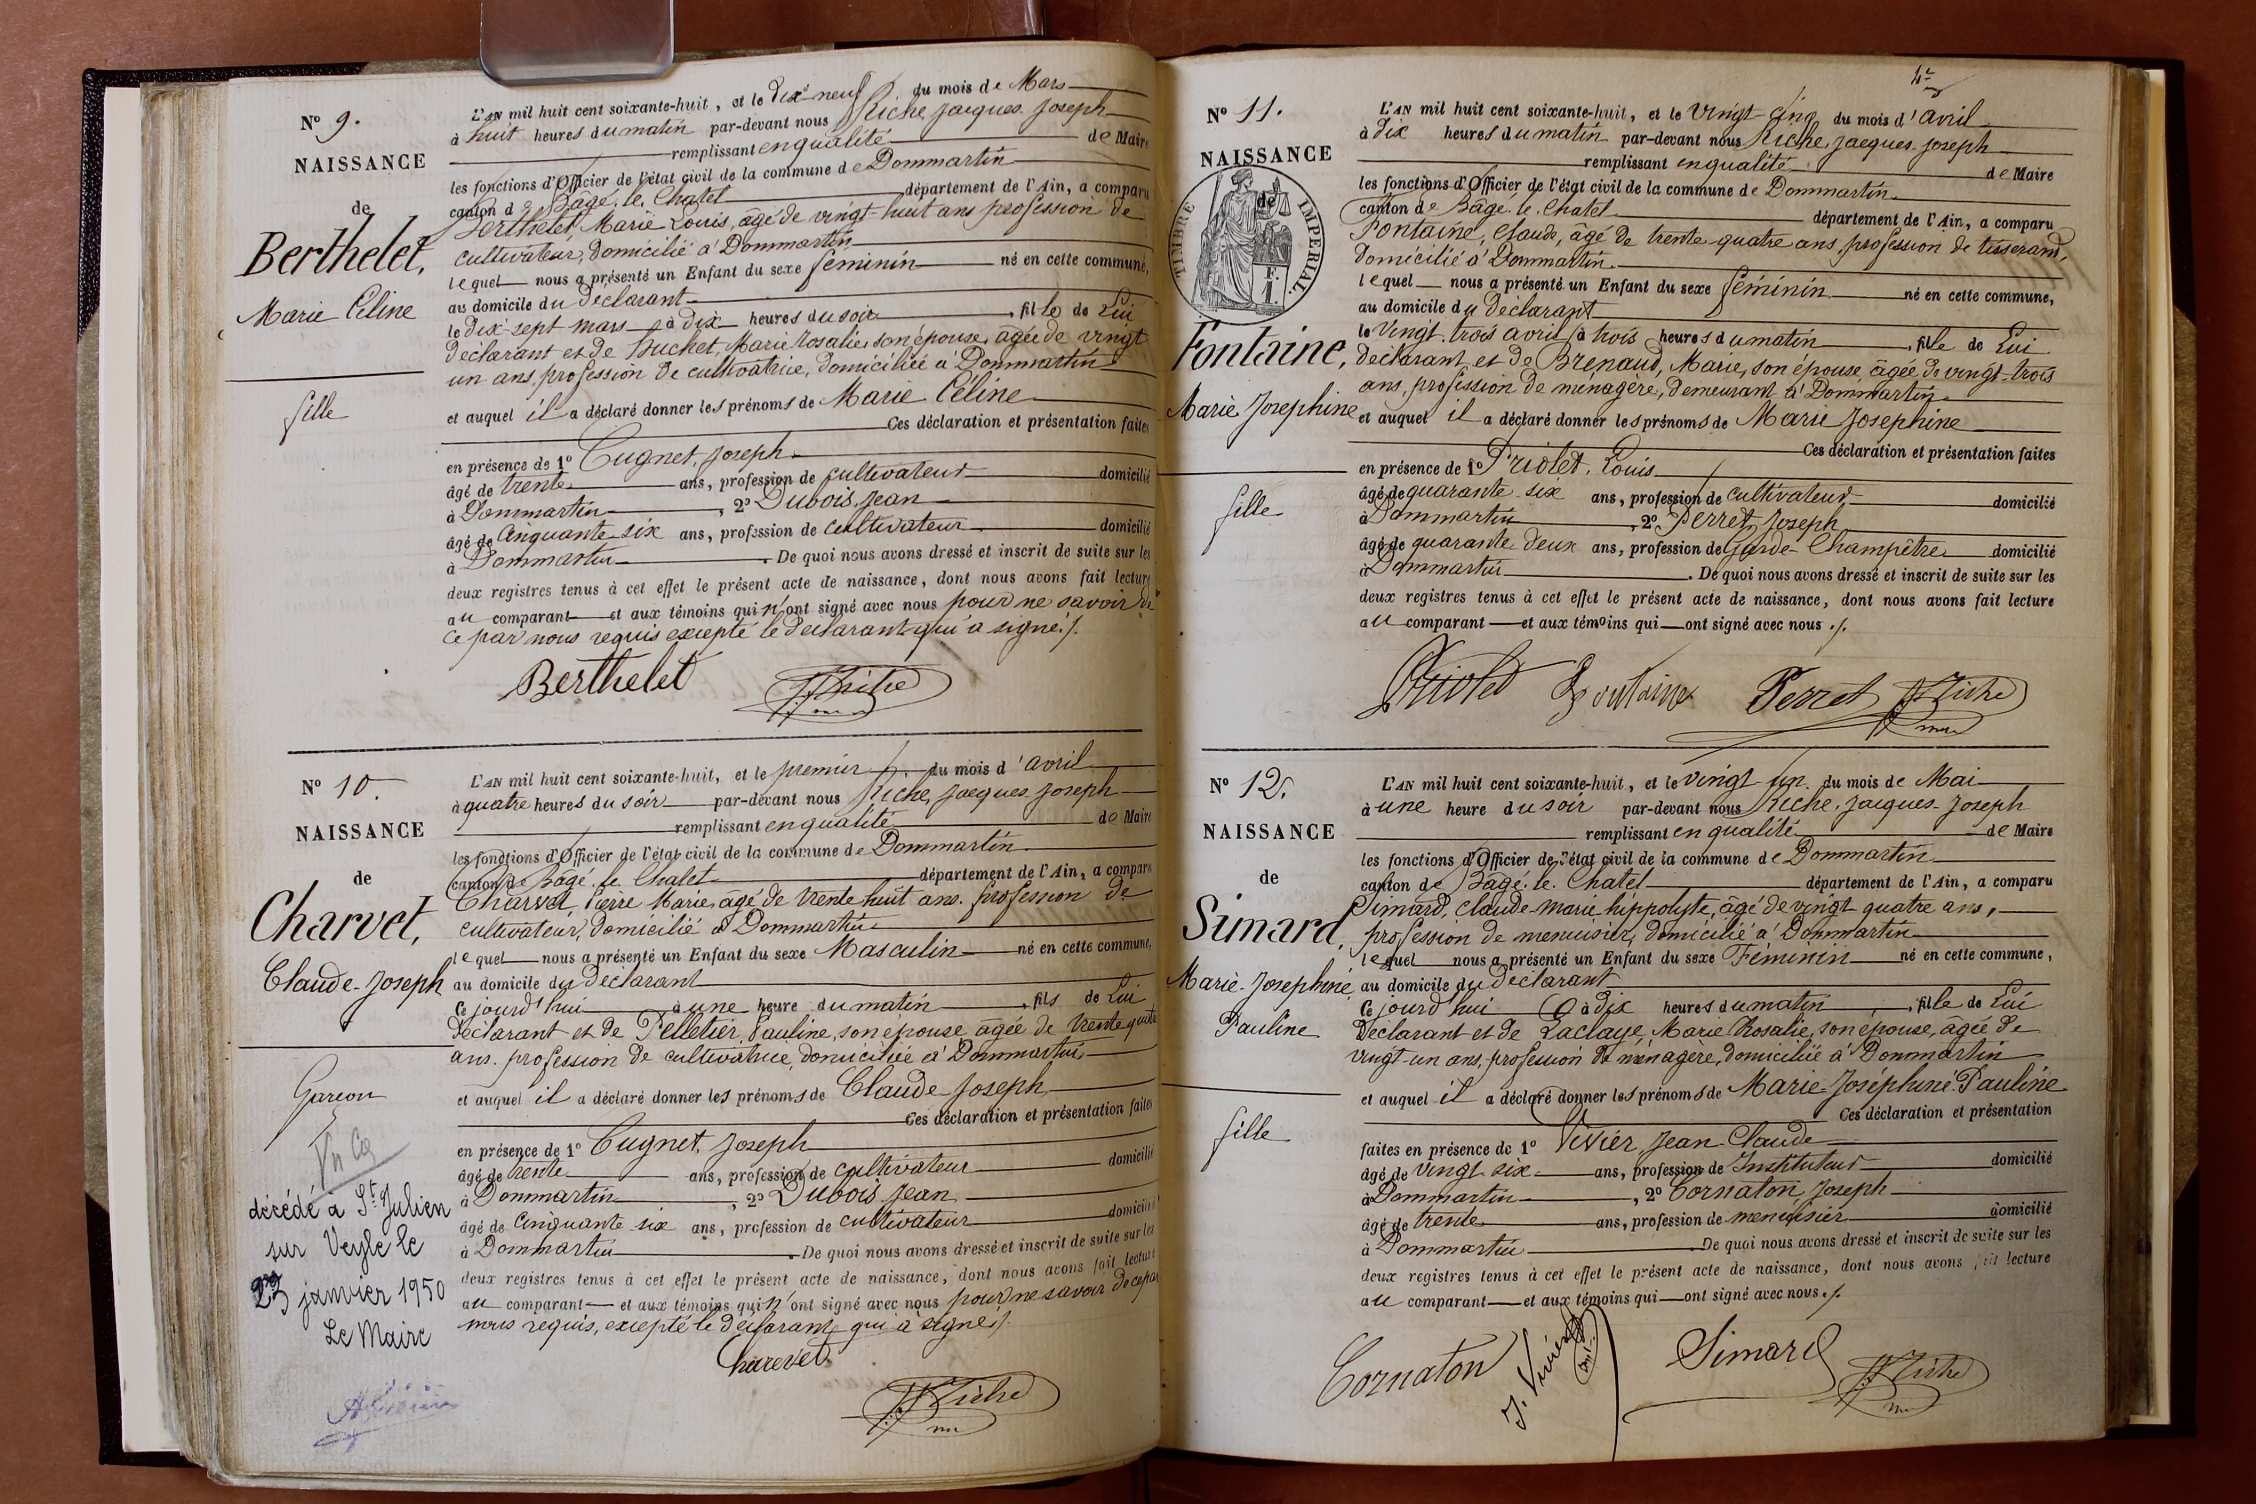 N° 9.
NAISSANCE
de
Berthelet,
Marie Céline
fille
L'AN mil huit cent soixante-huit, et le dix neuf du mois de Mars
à huit heures du matin par-devant nous Riche, Jacques Joseph
remplissant en qualité de Maire
les fonctions d'Officier de l'état civil de la commune de Dommartin
canton de Bagé le Chatel département de l'Ain, a comparu
Berthelet, Marie Louis, âgé de vingt-huit ans profession de
cultivateur, domicilié à Dommartin
lequel nous a présenté un Enfant du sexe féminin né en cette commune,
au domicile du déclarant
le dix sept mars à dix heures du soir, fille de Lui
déclarant et de Buchet, Marie Rosalie, son épouse, âgée de vingt
un ans, profession de cultivatrice, domiciliée à Dommartin
et auquel il a déclaré donner les prénoms de Marie Céline
Ces déclaration et présentation faites
en présence de 1° Cugnet, Joseph
âgé de trente ans, profession de cultivateur domicilié
à Dommartin, 2° Dubois, Jean
âgé de Cinquante six ans, profession de cultivateur domicilié
à Dommartin. De quoi nous avons dressé et inscrit de suite sur les
deux registres tenus à cet effet le présent acte de naissance, dont nous avons fait lecture
au comparant et aux témoins qui n'ont signé avec nous pour ne savoir de
ce par nous requis excepté le déclarant qui a signé./.
Berthelet JJ Riche
N° 10.
NAISSANCE
de
Charvet,
Claude-Joseph
Garçon
décédé à St Julien
sur Veyle le
23 janvier 1950
Le Maire
L'AN mil huit cent soixante-huit, et le premier du mois d'avril
à quatre heures du soir par-devant nous Riche, Jacques Joseph
remplissant en qualité de Maire
les fonctions d'Officier de l'état civil de la commune de Dommartin
canton de Bagé le Chatel département de l'Ain, a comparu
Charvet, Pierre Marie, âgé de trente huit ans. profession de
cultivateur, domicilié à Dommartin
lequel nous a présenté un Enfant du sexe Masculin né en cette commune,
au domicile du déclarant
ce jourd'hui à une heure du matin, fils de Lui
déclarant et de Pelletier, Pauline, son épouse âgée de trente quatre
ans. profession de cultivatrice, domiciliée à Dommartin
et auquel il a déclaré donner les prénoms de Claude Joseph
Ces déclaration et présentation faites
en présence de 1° Cugnet, Joseph
âgé de trente ans, profession de cultivateur domicilié
à Dommartin, 2° Dubois Jean
âgé de Cinquante six ans, profession de cultivateur domicilié
à Dommartin. De quoi nous avons dressé et inscrit de suite sur les
deux registres tenus à cet effet le présent acte de naissance, dont nous avons fait lecture
au comparant et aux témoins qui n'ont signé avec nous pour ne savoir de ce par
nous requis, excepté le déclarant qui a signé./.
Charvet
JJ Riche
N° 11.
NAISSANCE
de
TIMBRE IMPERIAL.
F.
1.
Fontaine,
Marie Josephine
fille
L'AN mil huit cent soixante-huit, et le vingt cinq du mois d'avril
à dix heures du matin par-devant nous Riche, Jacques Joseph
remplissant en qualité de Maire
les fonctions d'Officier de l'état civil de la commune de Dommartin
canton de Bagé le Chatel département de l'Ain, a comparu
Fontaine, Claude, âgé de trente-quatre ans, profession de tisserand,
domicilié à Dommartin.
lequel nous a présenté un Enfant du sexe féminin né en cette commune,
au domicile du déclarant
le vingt trois avril à trois heures du matin, fille de Lui
déclarant et de Brenaud, Marie, son épouse âgée de vingt-trois
ans, profession de ménagère, demeurant à Dommartin.
et auquel il a déclaré donner les prénoms de Marie Josephine
Ces déclaration et présentation faites
en présence de 1° Priolet, Louis
âgé de quarante six ans, profession de cultivateur domicilié
à Dommartin, 2° Perret, Joseph
âgé de quarante deux ans, profession de Garde-Champêtre domicilié
à Dommartin. De quoi nous avons dressé et inscrit de suite sur les
deux registres tenus à cet effet le présent acte de naissance, dont nous avons fait lecture
au comparant et aux témoins qui ont signé avec nous./.
Priolet Fontaine Perret JJ Riche
N° 12.
NAISSANCE
de
Simard,
Marie-Joséphine
Pauline
fille
L'AN mil huit cent soixante-huit, et le vingt un du mois de Mai
à une heure du soir par-devant nous Riche, Jacques-Joseph
remplissant en qualité de Maire
les fonctions d'Officier de l'état civil de la commune de Dommartin
canton de Bagé. le. Chatel département de l'Ain, a comparu
Simard, Claude-Marie hippolyte, âgé de vingt quatre ans,
profession de menuisier, domicilié à Dommartin
lequel nous a présenté un Enfant du sexe Féminin né en cette commune,
au domicile du déclarant
ce jourd'hui à dix heures du matin, fille de Lui
déclarant et de Laclaye, Marie Rosalie, son épouse, âgée de
vingt-un ans, profession de ménagère, domiciliée à Dommartin
et auquel il a déclaré donner les prénoms de Marie-Joséphine. Pauline
Ces déclaration et présentation
faites en présence de 1° Vivier, Jean-Claude
âgé de vingt six ans, profession de Instituteur domicilié
à Dommartin, 2° Cornaton, Joseph
âgé de trente ans, profession de menuisier domicilié
à Dommartin. De quoi nous avons dressé et inscrit de suite sur les
deux registres tenus à cet effet le présent acte de naissance, dont nous avons fait lecture
au comparant et aux témoins qui ont signé avec nous./.
Cornaton J. Vivier Simard JJ Riche